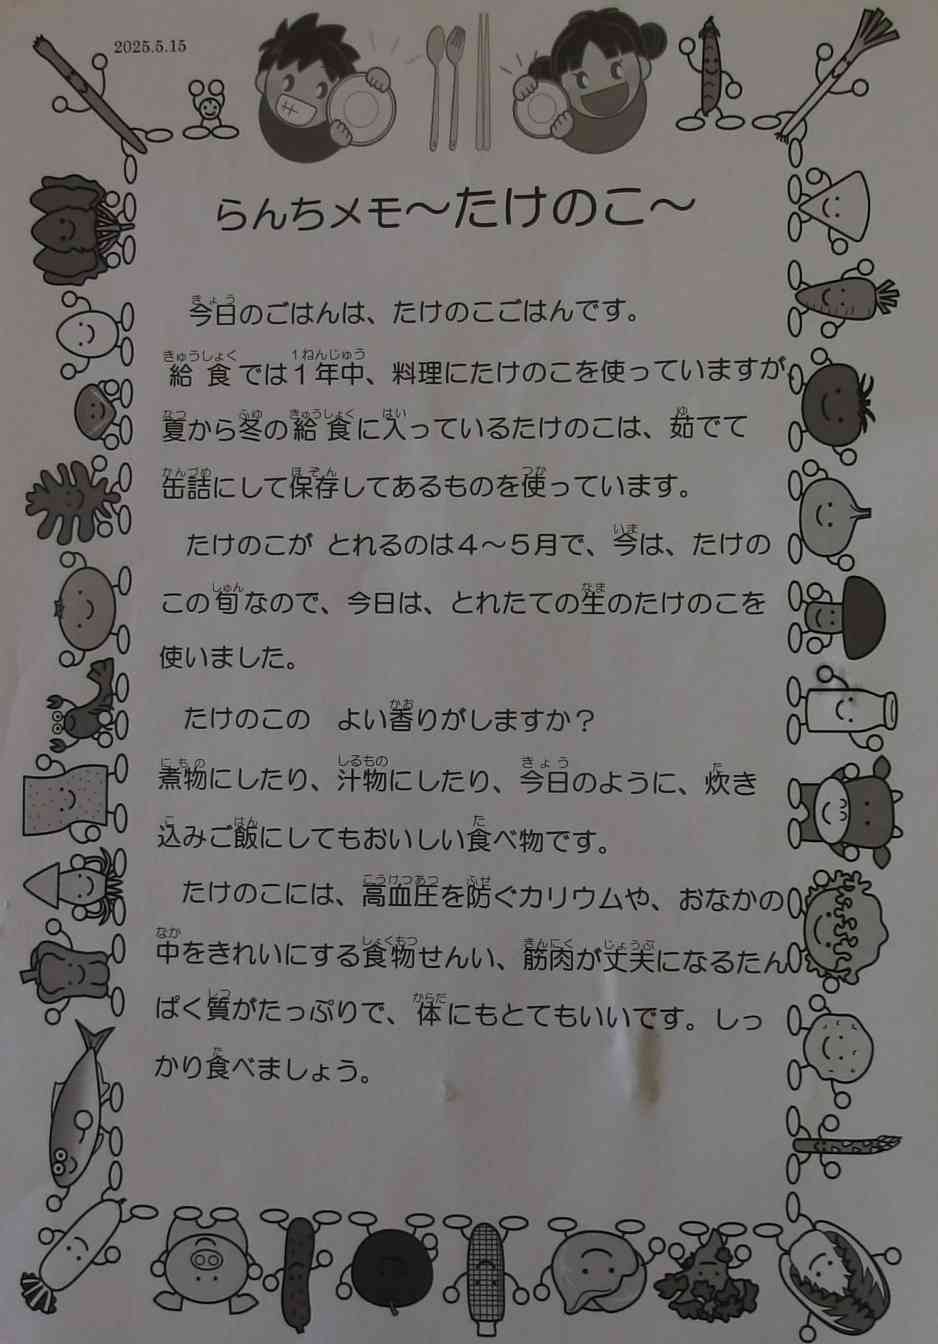 2025.5.15
らんちメモ～たけのこ～
今日のごはんは、たけのこごはんです。
給食では１年中、料理にたけのこを使っていますが、
夏から冬の給食に入っているたけのこは、茹でて
缶詰にして保存してあるものを使っています。
たけのこが とれるのは４～５月で、今は、たけの
この旬なので、今日は、とれたての生のたけのこを
使いました。
たけのこの　よい香りがしますか？
煮物にしたり、汁物にしたり、今日のように、炊き
込みご飯にしてもおいしい食べ物です。
たけのこには、高血圧を防ぐカリウムや、おなかの
中をきれいにする食物せんい、筋肉が丈夫になるたん
ぱく質がたっぷりで、体にもとてもいいです。しっ
かり食べましょう。